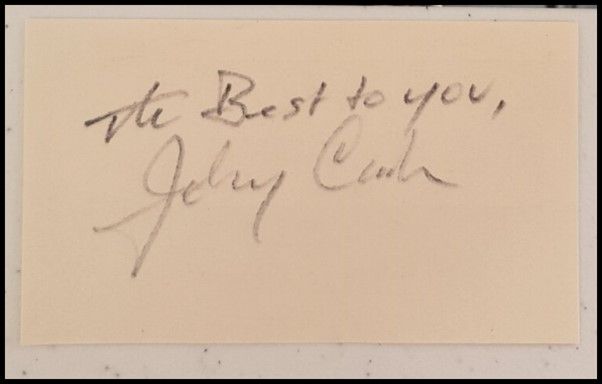 The Best to you,
Johny Cash